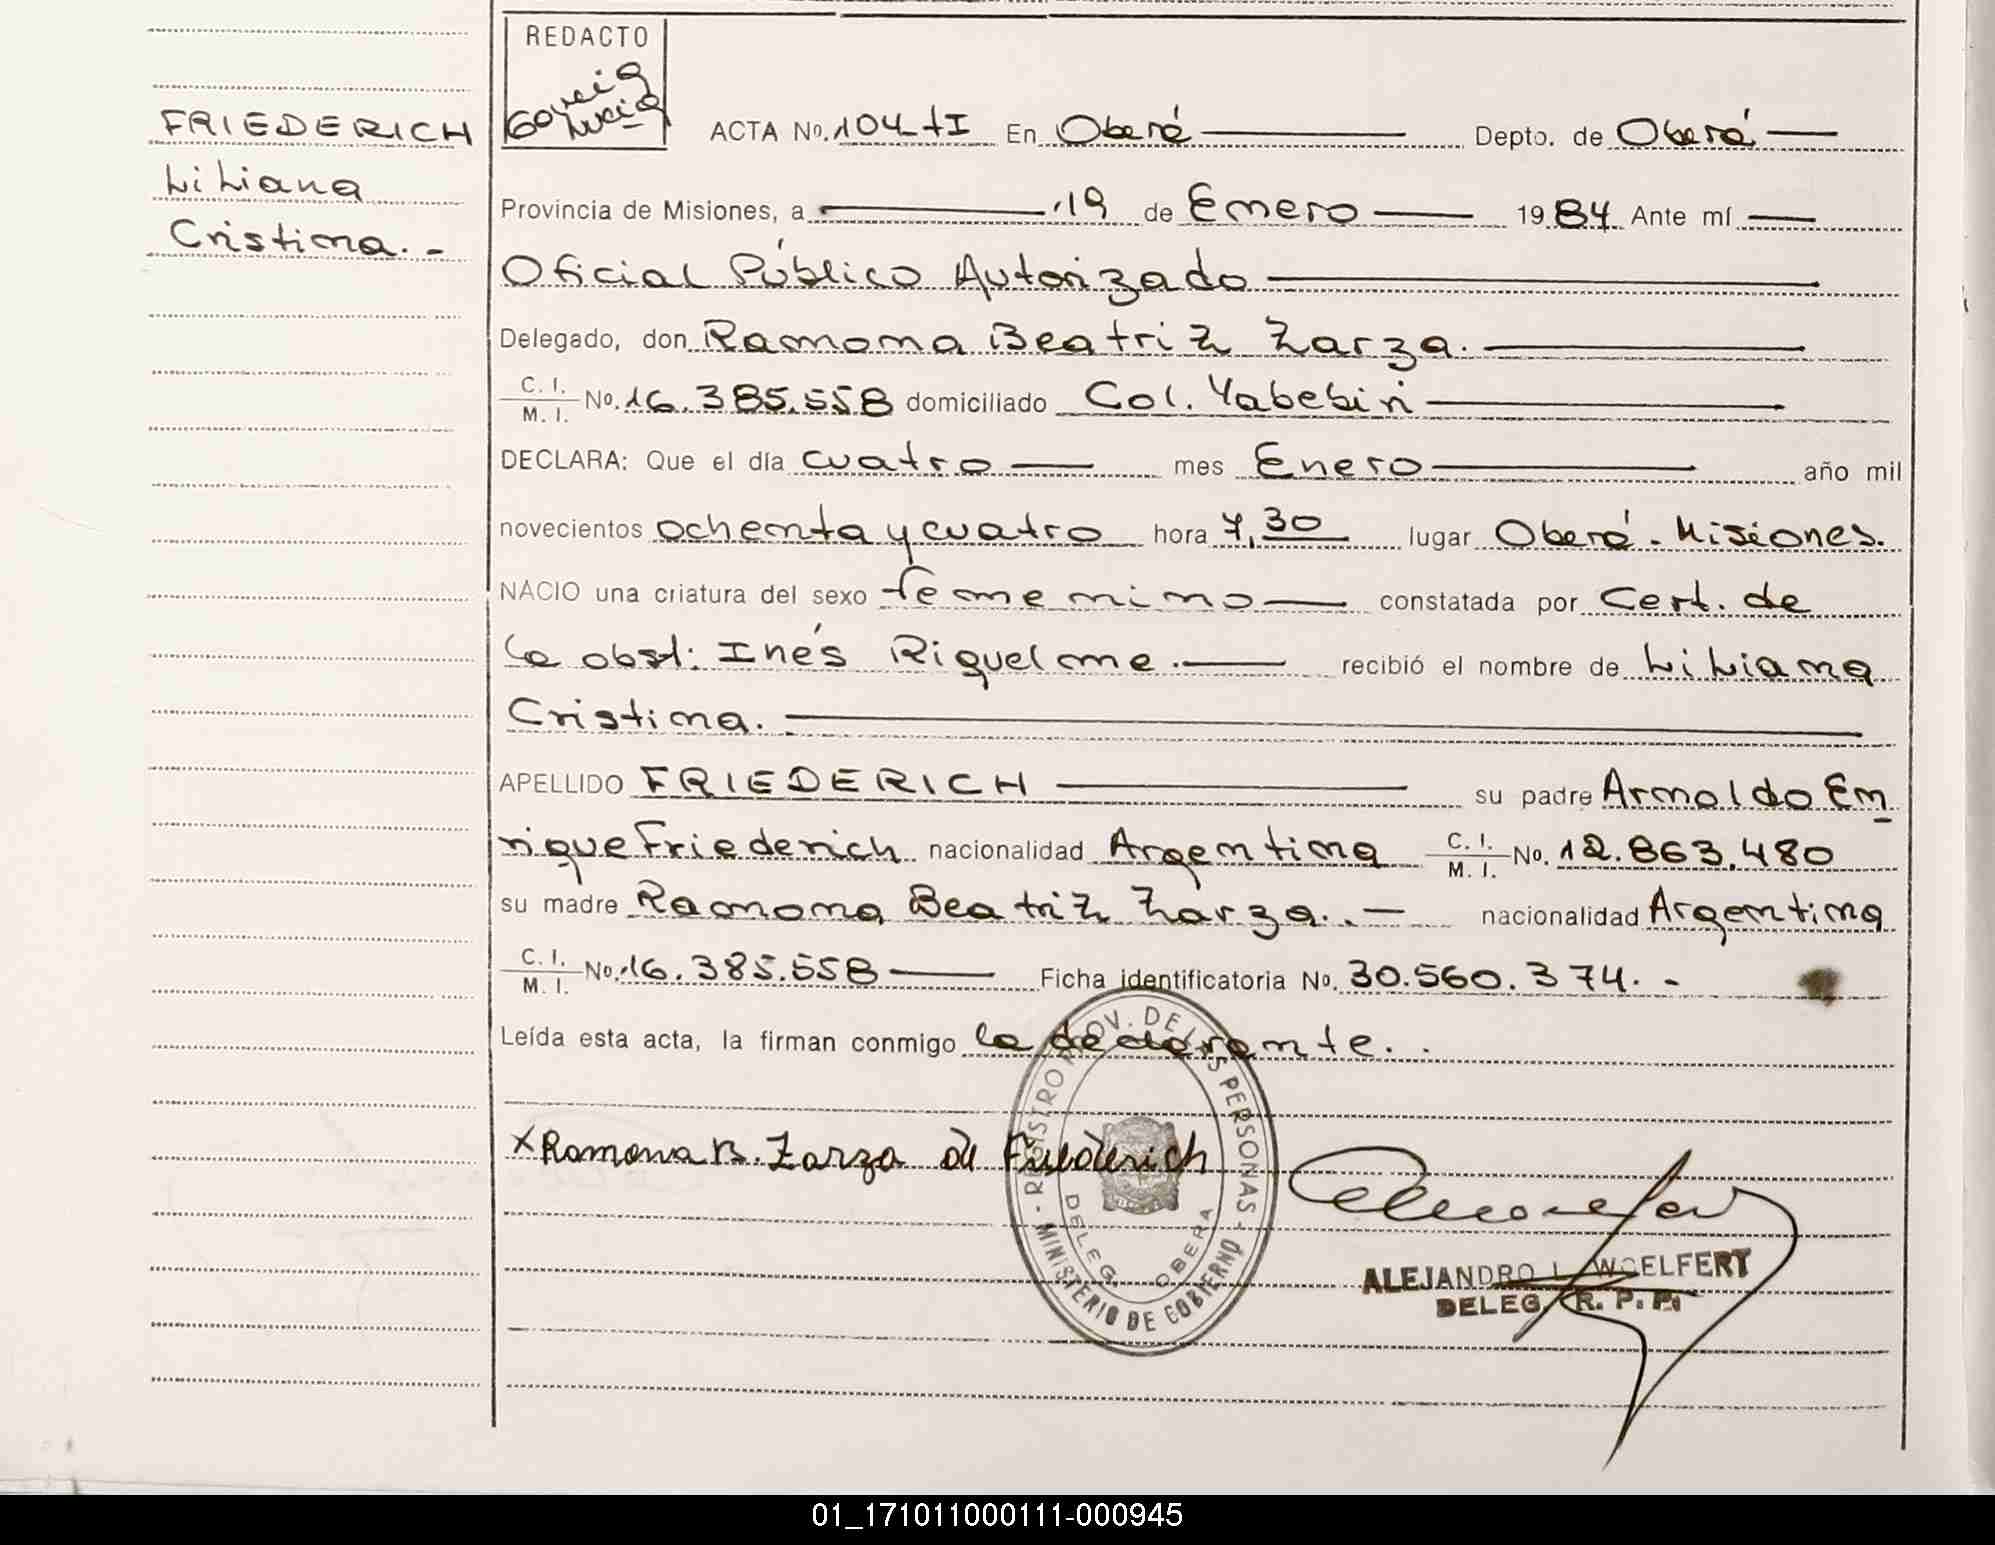 REDACTO
FRIEDERICH
Liliana
Cristina.-
ACTA No. 104-tI En Oberá Depto. de Oberá
Provincia de Misiones, a 19 de Enero 1984 Ante mí
Oficial Público Autorizado
Delegado, don Ramona Beatriz Zarza.
C. I. / M. I. No. 16.385.558 domiciliado Col. Yabebiri
DECLARA: Que el día cuatro mes Enero año mil
novecientos ochenta y cuatro hora 7,30 lugar Oberá - Misiones.
NACIO una criatura del sexo femenino constatada por Cert. de
la obst: Inés Riquelme. recibió el nombre de Liliana
Cristina.
APELLIDO FRIEDERICH su padre Arnoldo En
rique Friederich nacionalidad Argentina C. I. / M. I. No. 12.863.480
su madre Ramona Beatriz Zarza.. nacionalidad Argentina
C. I. / M. I. No. 16.385.558 Ficha identificatoria No. 30.560.374.-
Leída esta acta, la firman conmigo la declarante..
x Ramona B. Zarza de Friederich
REGISTRO PROV. DE LAS PERSONAS - MINISTERIO DE GOBIERNO -
DELEG. OBERA
ALEJANDRO L. WOELFERT
DELEG. R. P. P.
01_171011000111-000945